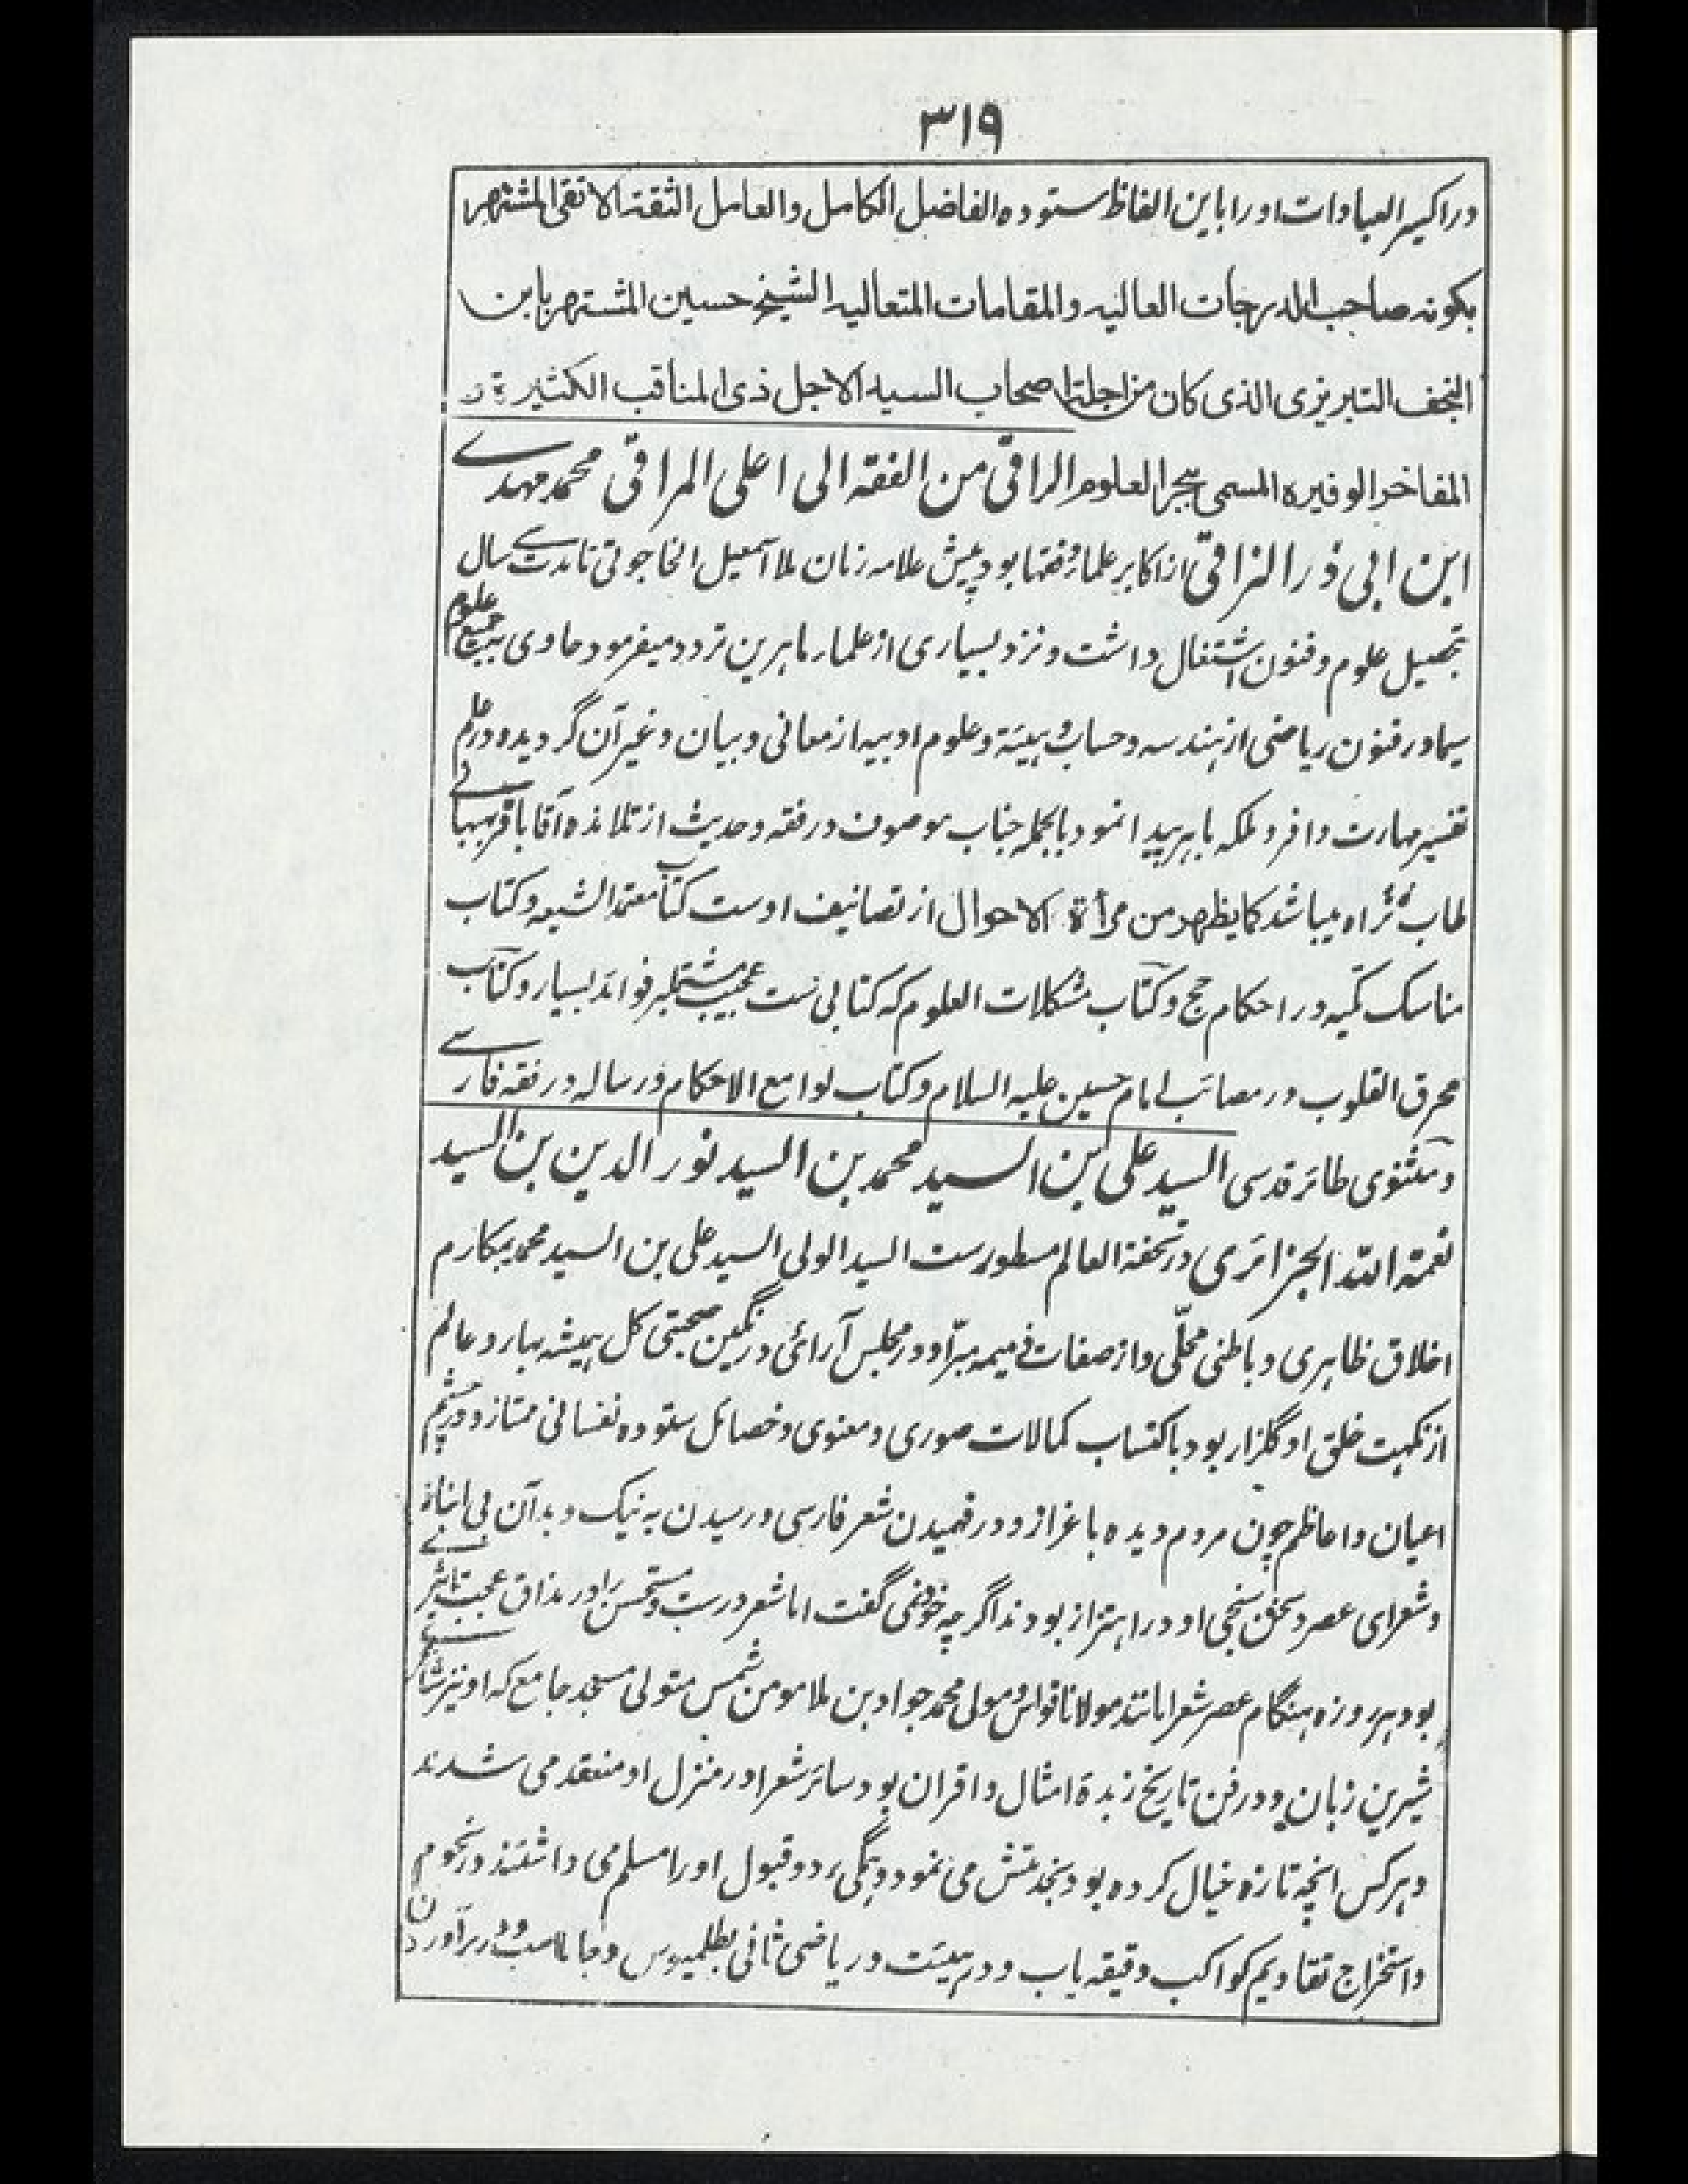 ۳۱۹
در اکسیر العبادات اورا باین الفاظ ستوده الفاضل الکامل والعامل الثقة الاتقی المشتهر
بکونه صاحب الدرجات العالیه والمقامات المتعالیه الشیخ حسین المشتهر بابن
النجف التبریزی الذی کان من اجلة اصحاب السید الاجل ذی المناقب الکثیرة و
المفاخر الوفیره المسمی ببحر العلوم الراقی من الفقه الی اعلی المراقی محمد مهدے
ابن ابی ذر النراقی از اکابر علما و فقها بود پیش علامه زمان ملا اسمعیل الخاجوئی تا مدت سے سال
بتحصیل علوم و فنون اشتغال داشت و نزد بسیاری از علمار ماهرین تردد میفرمود حاوی جمیع علوم
سیما در فنون ریاضی از هندسه و حساب و هیئة و علوم ادبیه از معانی و بیان و غیر آن گردیده و در علم
تفسیر مهارت وافر و ملکه باهر پیدا نمود بالجمله جناب موصوف در فقه و حدیث از تلامذه آقا باقر بهبهانے
طاب ثراه میباشد کما یظهر من مرأة الاحوال از تصانیف اوست کتاب معتمد الشیعه و کتاب
مناسک مکیه در احکام حج و کتاب مشکلات العلوم که کتابی ست عجیب مشتملبر فوائد بسیار و کتاب
محرق القلوب در مصائب امام حسین علیه السلام و کتاب لوامع الاحکام و رساله در فقه فارسے
و مثنوی طائر قدسی السید علی ابن السید محمد بن السید نور الدین بن السید
نعمة الله الجزائری در تحفة العالم مسطورست السید الولی السید علی بن السید محمد بمکارم
اخلاق ظاهری و باطنی محلّی و از صفات ذمیمه مبرّا و در مجلس آرائی و رنگین صحبتی کل همیشه بهار و عالم
از نکهت خلق او گلزار بود باکتساب کمالات صوری و معنوی و خصائل ستوده نفسانی ممتاز و در چشم
اعیان و اعاظم چون مردم دیده باعزاز و در فهمیدن شعر فارسی و رسیدن به نیک و بد آن بی انباز
و شعرای عصر و سخن سنجی او در اهتزاز بودند اگرچه خود نمی گفت اما شعر درست و مستحسن را در مذاق عجب تاثیرے
بود هر روزه هنگام عصر شعرا مانند مولانا قواس و مولی محمد جواد بن ملا مومن شمس متولی مسجد جامع که او نیز شاعرے
شیرین زبان و در فن تاریخ زبدة امثال و اقران بود سائر شعرا در منزل او منعقد می شدند
و هر کس انچه تازه خیال کرده بود بخدمتش می نمود و همگی رد و قبول او را مسلم می داشتند در نجوم
و استخراج تقاویم کواکب دقیقه یاب و در هیئت و ریاضی ثانی بطلمیوس و جاماسب و در برآوردن